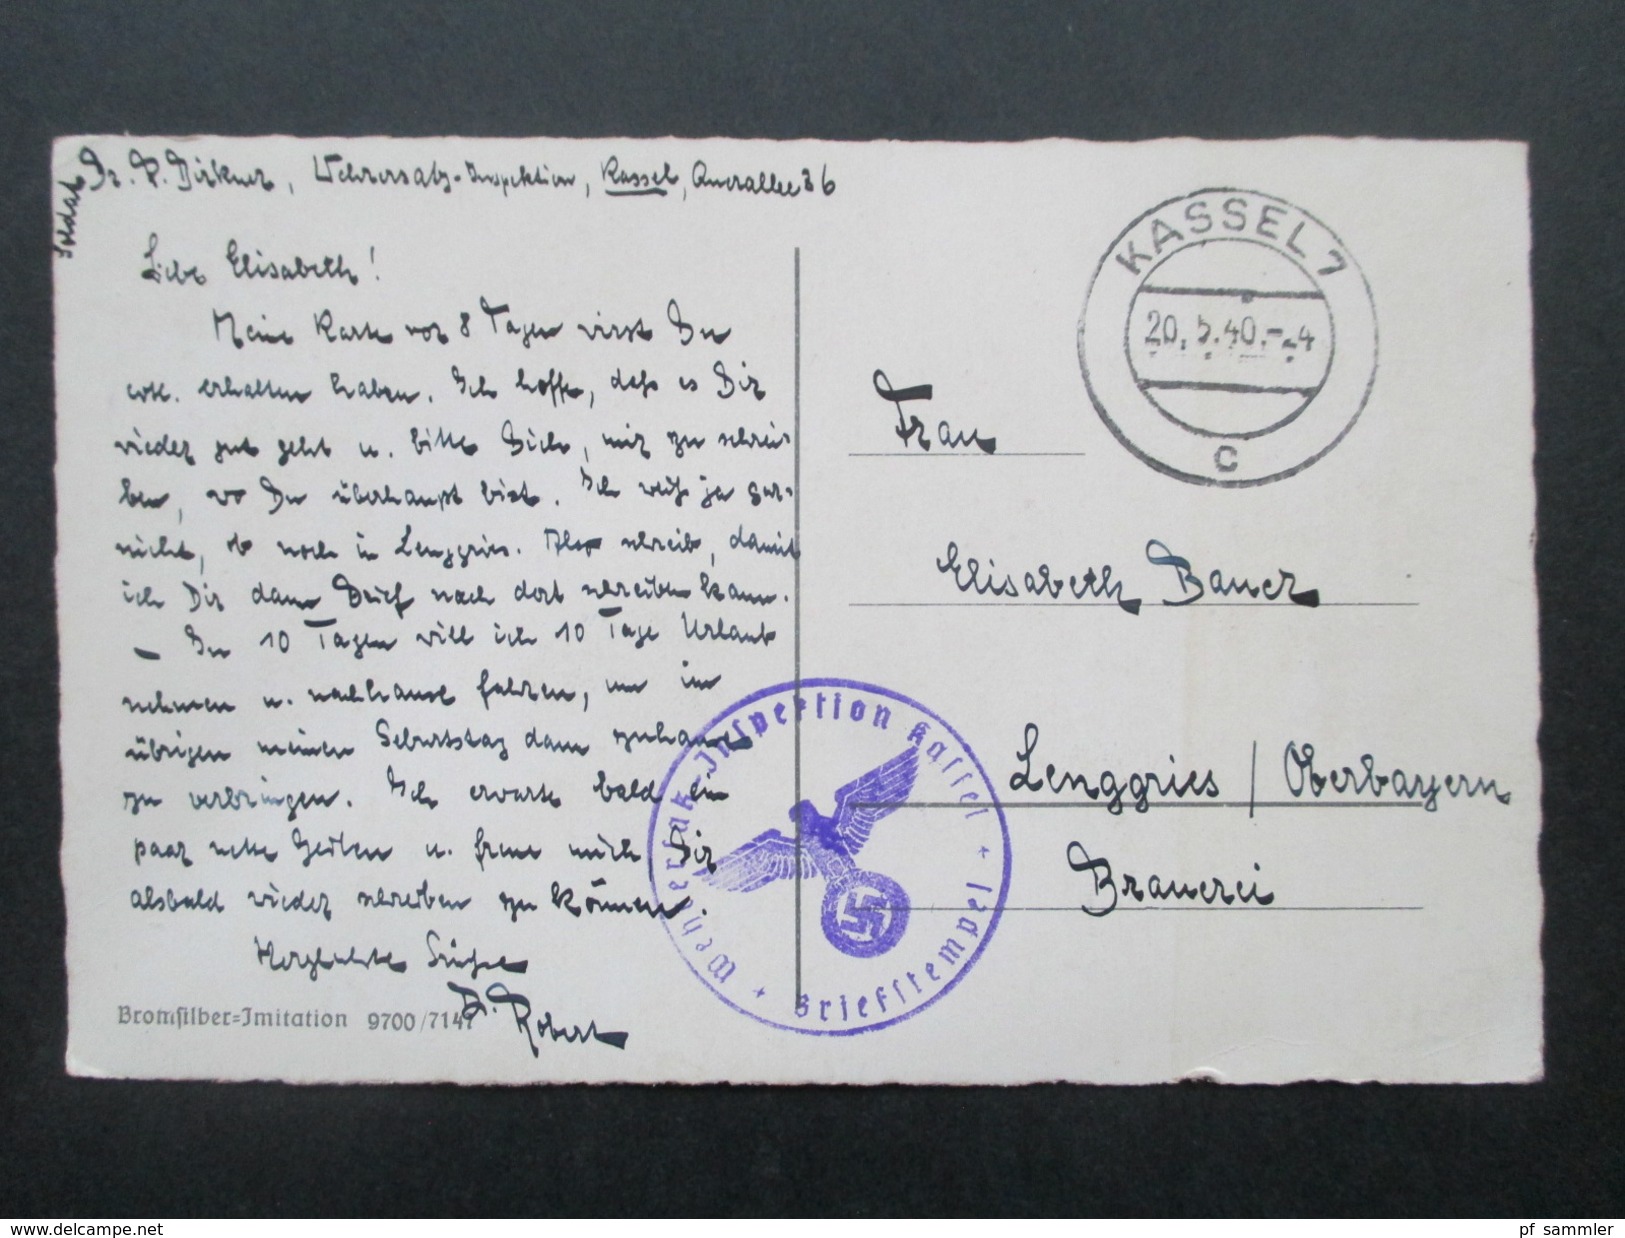 Soldat Dr. R. Dirkner, Wehrersatz-Inspektion, Kassel, Querallee 36
Liebe Elisabeth!
Meine Karte vor 8 Tagen wirst Du
erhalten haben. Ich hoffe, daß es Dir
wieder gut geht u. bitte Dich, mir zu schrei-
ben, wo Du überhaupt bist. Ich weiß ja gar-
nicht, ob noch in Lenggries. Also schreib, damit
ich Dir dann Brief nach dort schreiben kann.
– In 10 Tagen will ich 10 Tage Urlaub
nehmen u. nachhause fahren, um im
übrigen meinen Geburtstag dann zuhause
zu verbringen. Ich erwarte bald ein
paar nette Zeilen u. freue mich, Dir
alsbald wieder schreiben zu können.
Herzlichste Grüße
D. Robert
Bromsilber-Imitation 9700/7147
KASSEL 7
20.5.40.--4
c
Frau
Elisabeth Bauer
Lenggries / Oberbayern
Brauerei
Wehrersatz-Inspektion Kassel
* Briefstempel *
www.delcampe.net
pf_sammler